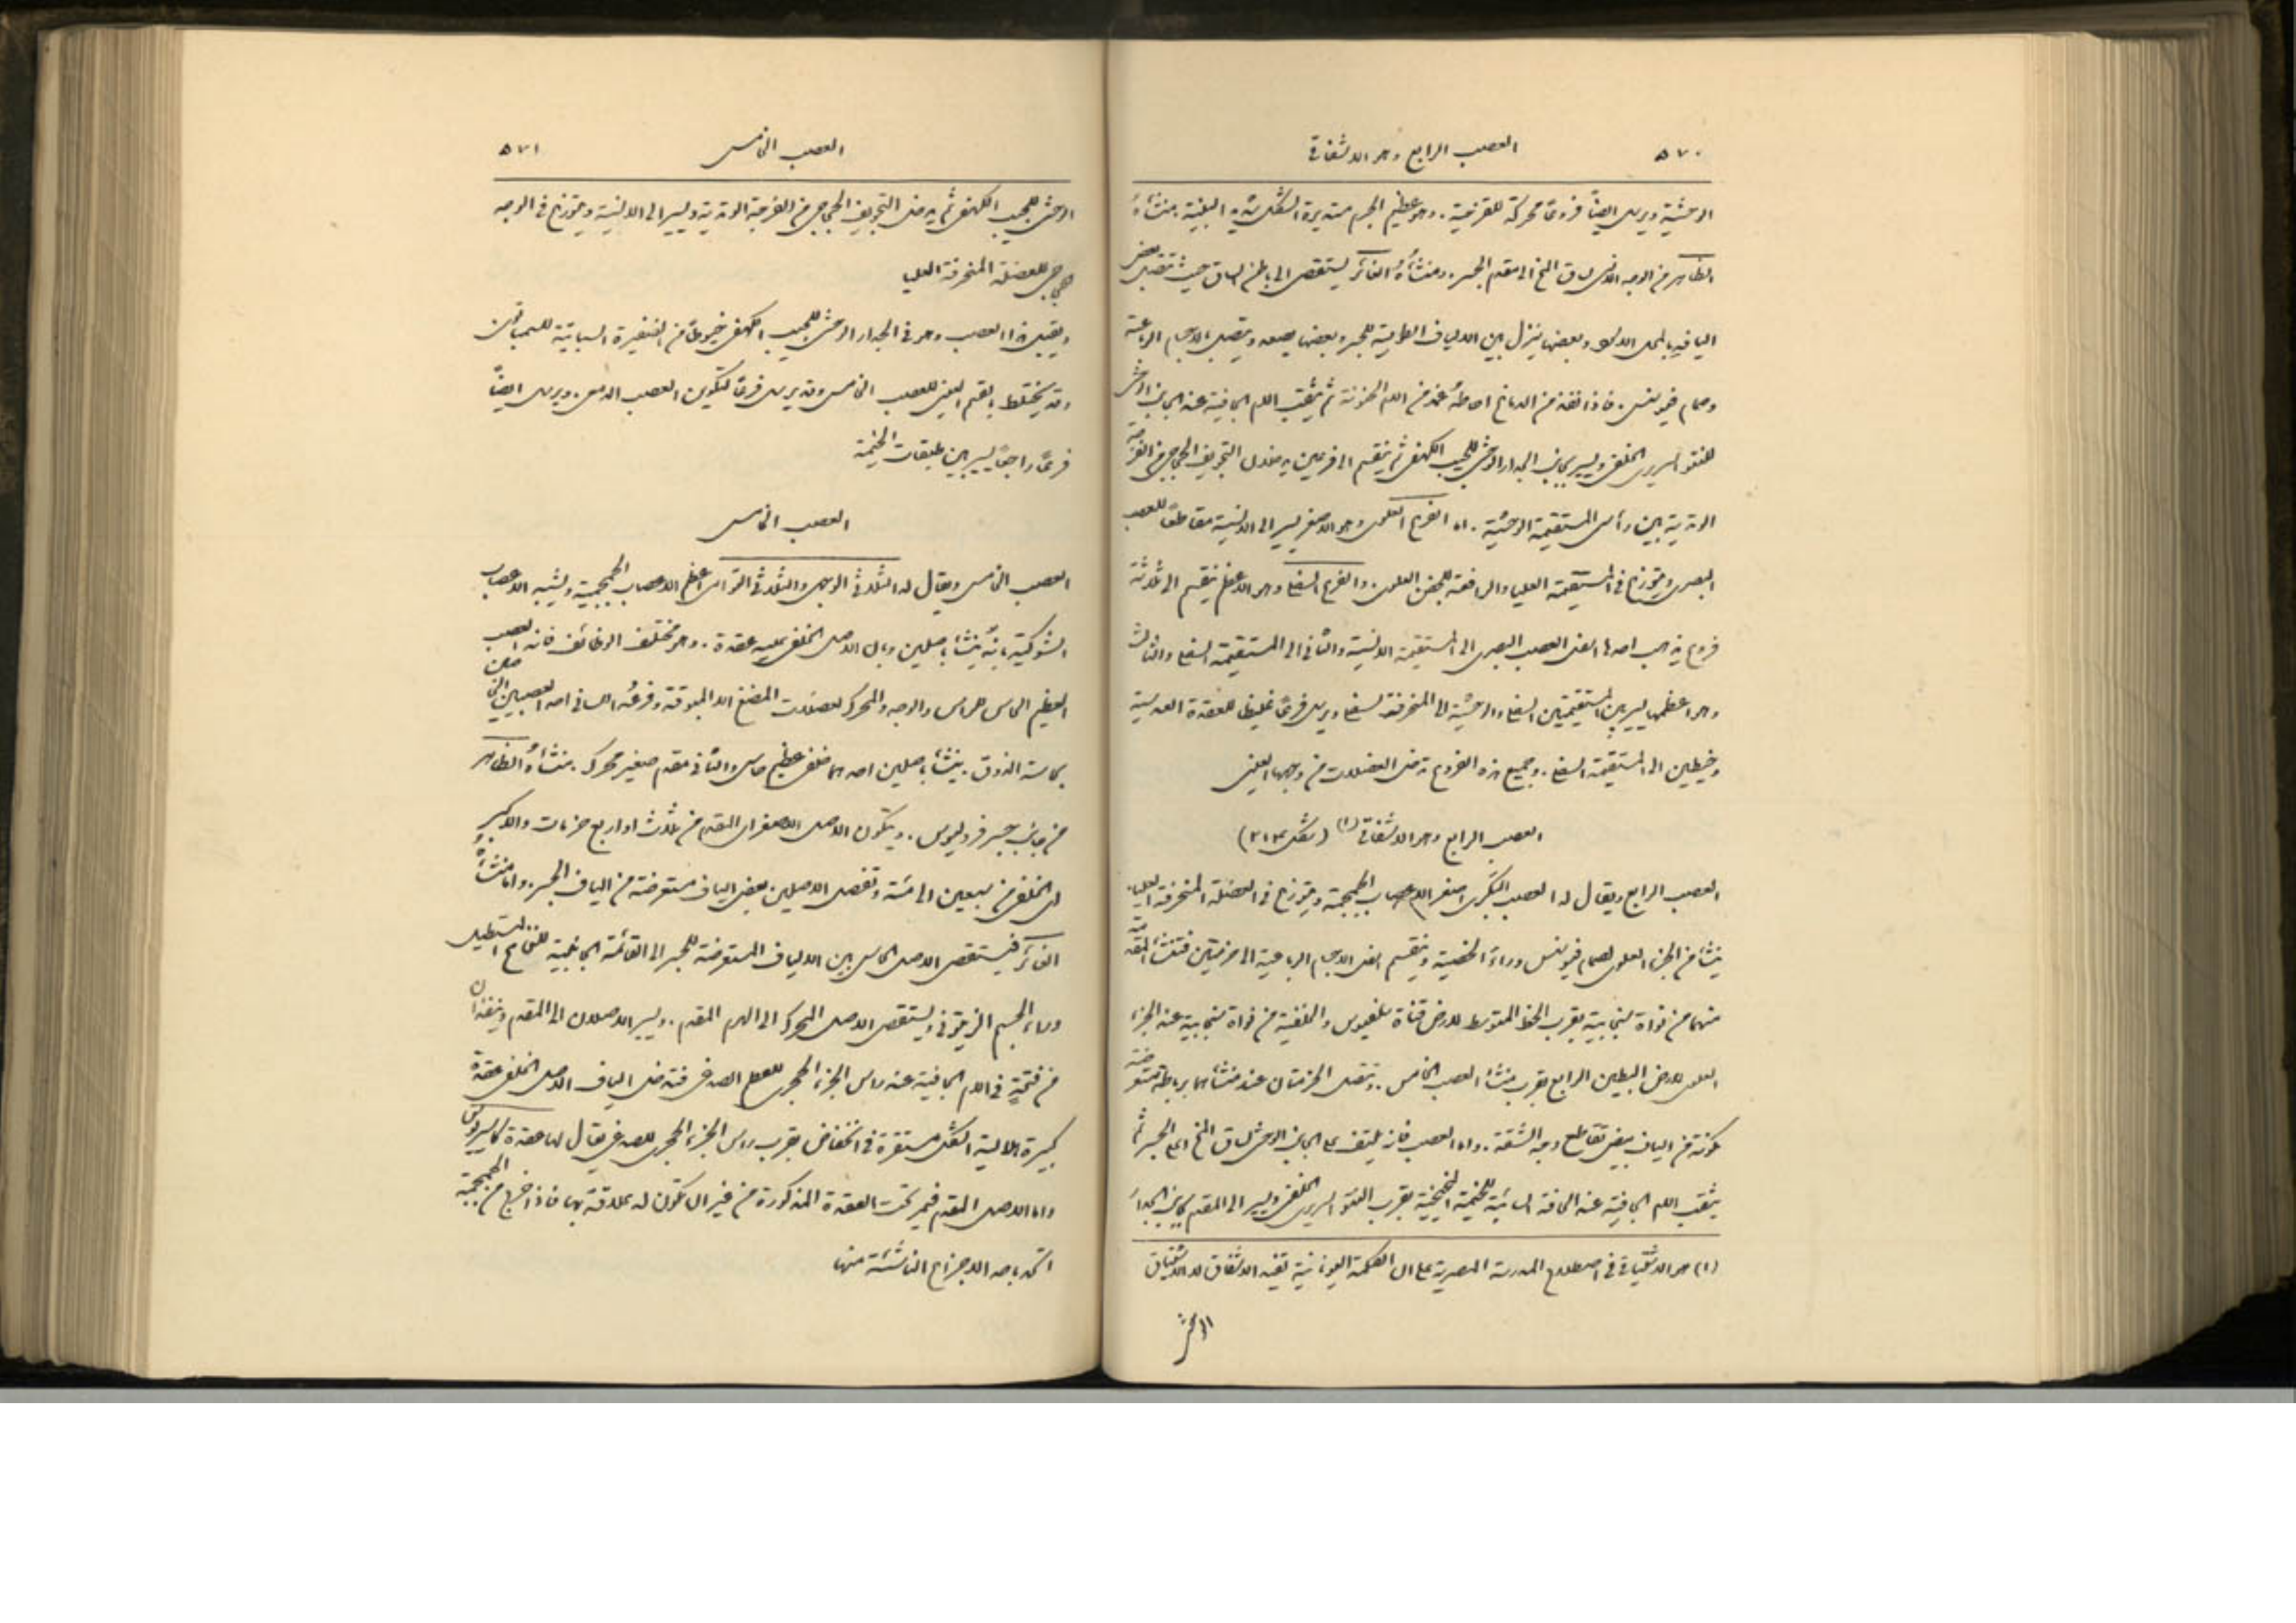 ٥٧٠ العصب الرابع وهو الاشتفاقي
الوحشية ويرسل ايضًا فروعًا محركة للقزحية. وهو عظيم الجرم مستديرة الشكل شديد البنية. منشأهُ
الظاهر من الوجه الانسي لساق المخ الى مقدم الجسر. ومنشأُهُ الغائر يستقصى الى باطن الساق حيث تتصل بعض
اليافهِ بالمحل الاسود وبعضها ينزل بين الالياف الطولية للجسر وبعضها يصعد ويتصل بالاجسام الرباعية
وصمام فيوسنس. فاذا نفذ من الدماغ احاطهُ غمد من الام الحنونة ثم يثقب الام الجافية عند الجانب الوحشي
للنتوء السريري الخلفي ويسير بجانب الجدار الوحشي للجيب الكهفي ثم ينقسم الى فرعين يدخلان التجويف الحجاجي من الفرجة
الوتدية بين رأسي المستقيمة الوحشية. اما الفرع العلوي وهو الاصغر يسير الى الانسية مقاطعًا للعصب
البصري ويتوزع في المستقيمة العليا والرافعة للجفن العلوي. والفرع السفلي وهو الاعظم ينقسم الى ثلاثة
فروع يذهب احدها اسفل العصب البصري الى المستقيمة الانسية والثاني الى المستقيمة السفلى والثالث
وهو اعظمها يسير بين المستقيمتين السفلى والوحشية الى المنحرفة السفلى ويرسل فرعًا غليظًا للعقدة العدسية
وخيطين الى المستقيمة السفلى. وجميع هذه الفروع تدخل العضلات من وجهها العيني
العصب الرابع وهو الاشتفاقي (١) (شكل ٢١٣)
العصب الرابع ويقال له العصب البكري اصغر الاعصاب الجمجمية ويتوزع في العضلة المنحرفة العليا.
ينشأ من الجزء العلوي لصمام فيوسنس وراء الخصية وينقسم اسفل الاجسام الرباعية الى حزمتين فتنشأ المقدمة
منهما من نواة سنجابية بقرب الخط المتوسط لارض قناة سلفيوس والخلفية من نواة سنجابية عند الجزء
العلوي لارض البطين الرابع بقرب منشأ العصب الخامس. وتتصل الحزمتان عند منشأهما برباطة مستعرضة
مكونة من الياف بيض تقاطع وجه الشقة. واما العصب فانه يلتف على الجانب الوحشي لساق المخ امام الجسر ثم
يثقب الام الجافية عند الحافة السائبة للخيمة المخيخية بقرب النتوء السريري الخلفي ويسير الى المقدم بجانب الجدار
(١) هو الاشتياقي في اصطلاح المدرسة المصرية على ان الكلمة اليونانية تفيد الاشفاق لا الاشتياق
الوحشي
العصب الخامس ٥٧١
الوحشي للجيب الكهفي ثم يدخل التجويف الحجاجي من الفرجة الوتدية ويسير الى الانسية ويتوزع في الوجه
الحجاجي للعضلة المنحرفة العليا
ويقبل هذا العصب وهو في الجدار الوحشي للجيب الكهفي خيوطًا من الضفيرة السباتية للسمباثوي
وقد يختلط بالقسم العيني للعصب الخامس وقد يرسل فرعًا لتكوين العصب الدمعي. ويرسل ايضًا
فرعًا راجعًا يسير بين طبقات الخيمة
العصب الخامس
العصب الخامس ويقال له الثلاثي الوجهي والثلاثي التوأمي اعظم الاعصاب الجمجمية ويشبه الاعصاب
الشوكية بانهُ ينشأ باصلين وبان الاصل الخلفي عليه عقدة. وهو مختلف الوظائف فانه العصب
العظيم الحاسي للراس والوجه والمحرك لعضلات المضغ الا المبوقة وفرعهُ اللساني احد العصبين المختصين
بحاسة الذوق. ينشأ باصلين احدهما خلفي عظيم حاسي والثاني مقدم صغير محرك. منشأهُ الظاهر
من جانب جسر فروليوس. ويتكون الاصل الاصغر اي المقدم من ثلاث او اربع حزمات والاكبر
اي الخلفي من سبعين الى مئة وتفصل الاصلين بعض الياف مستعرضة من الياف الجسر. واما منشأهُ
الغائر فيستقصى الاصل الحاسي بين الالياف المستعرضة للجسر الى القائمة الجانبية للنخاع المستطيل
وراء الجسم الزيتوني ويستقصى الاصل المحرك الى الهرم المقدم. ويسير الاصلان الى المقدم وينفذان
من فتحةٍ في الام الجافية عند راس الجزء الحجري للعظم الصدغي فتدخل الياف الاصل الخلفي عقدة
كبيرة هلالية الشكل مستقرة في انخفاض بقرب راس الجزء الحجري للصدغي يقال لها عقدة كاسيريوس
واما الاصل المقدم فيمر تحت العقدة المذكورة من غير ان تكون له علاقة بها فاذا خرج من الجمجمة
اتحد باحد الاجزاع الناشئة منها